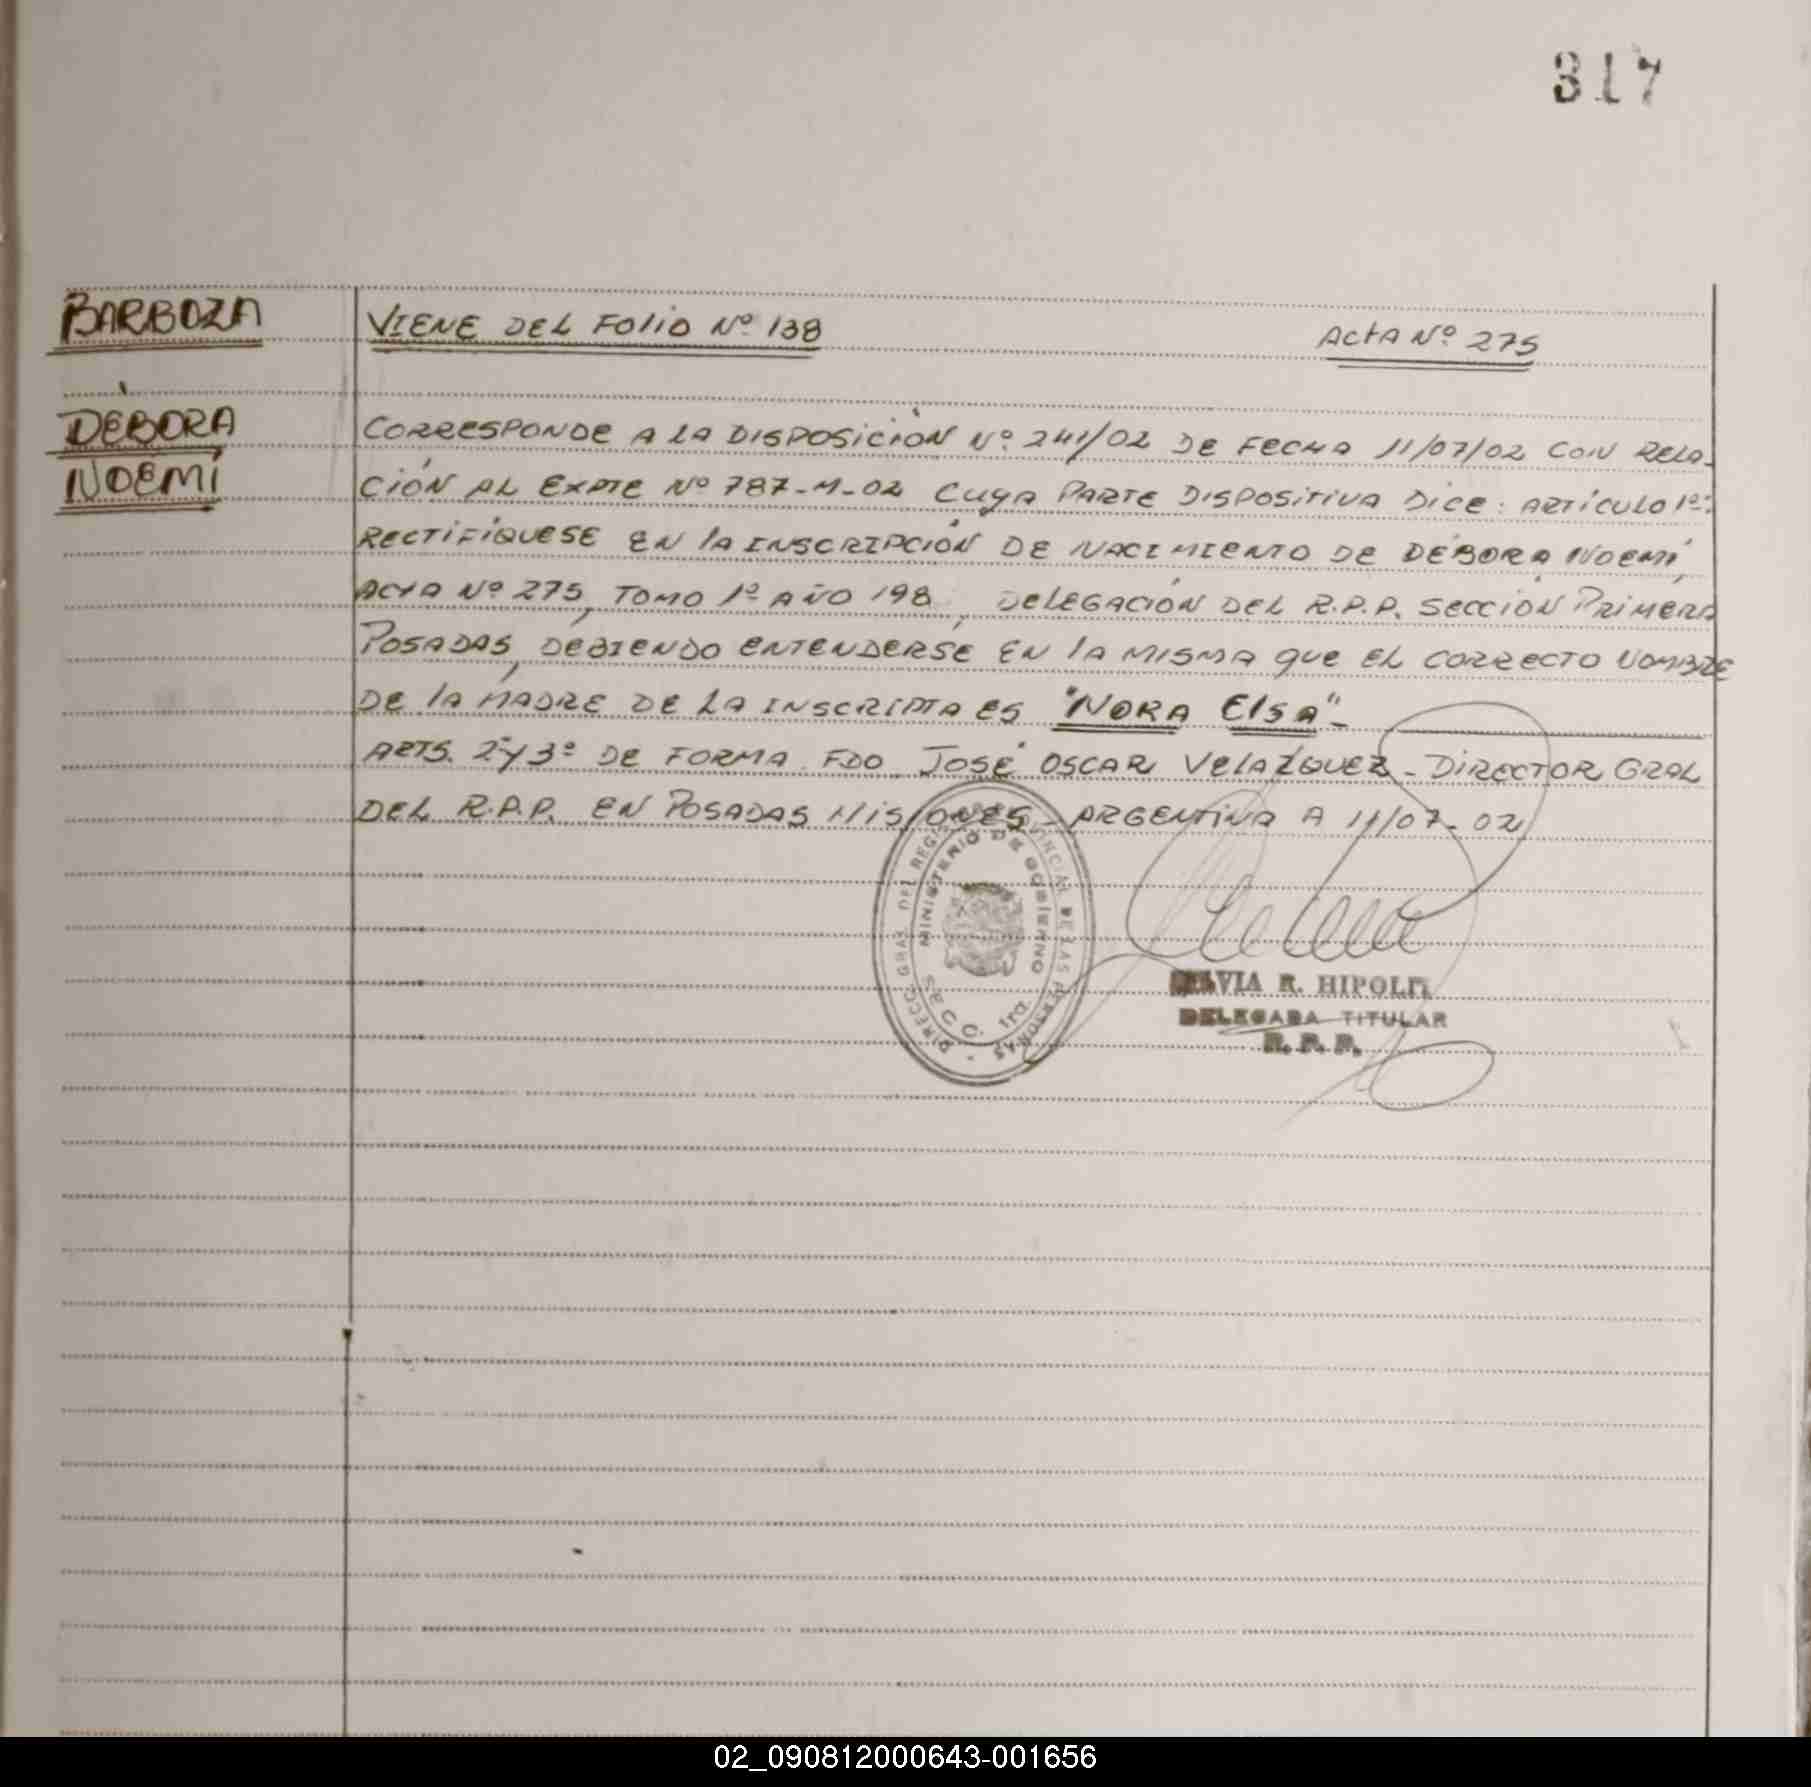 317
BARBOZA
DÉBORA
NOEMÍ
VIENE DEL FOLIO Nº 138
ACTA Nº 275
CORRESPONDE A LA DISPOSICIÓN Nº 241/02 DE FECHA 11/07/02 CON RELA-
CIÓN AL EXPTE Nº 787-M-02 CUYA PARTE DISPOSITIVA DICE: ARTÍCULO 1º:
RECTIFÍQUESE EN LA INSCRIPCIÓN DE NACIMIENTO DE DÉBORA NOEMÍ,
ACTA Nº 275, TOMO 1º AÑO 198 , DELEGACIÓN DEL R.P.P. SECCIÓN PRIMERA
POSADAS, DEBIENDO ENTENDERSE EN LA MISMA QUE EL CORRECTO NOMBRE
DE LA MADRE DE LA INSCRIPTA ES "NORA ELSA"-
ARTS. 2º Y 3º DE FORMA. FDO. JOSÉ OSCAR VELAZQUEZ - DIRECTOR GRAL
DEL R.P.P. EN POSADAS MISIONES - ARGENTINA A 11/07-02
DIRECC. GRAL. DEL REGISTRO PROVINCIAL DE LAS PERSONAS
MINISTERIO DE GOBIERNO
R. HIPOLIT
DELEGADA TITULAR
R. P. P.
02_090812000643-001656